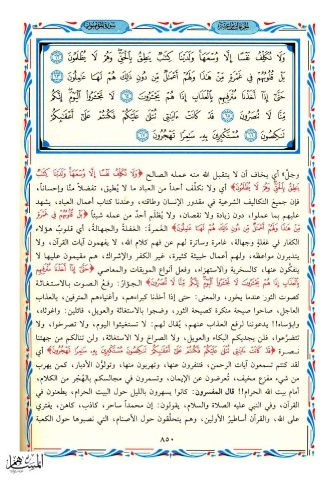 سورة المؤمنون
وَلَا نُكَلِّفُ نَفْسًا إِلَّا وُسْعَهَا وَلَدَيْنَا كِتَابٌ يَنطِقُ بِالْحَقِّ وَهُمْ لَا يُظْلَمُونَ ۝٦٢
بَلْ قُلُوبُهُمْ فِي غَمْرَةٍ مِّنْ هَٰذَا وَلَهُمْ أَعْمَالٌ مِّن دُونِ ذَٰلِكَ هُمْ لَهَا عَامِلُونَ ۝٦٣
حَتَّىٰ إِذَا أَخَذْنَا مُتْرَفِيهِم بِالْعَذَابِ إِذَا هُمْ يَجْأَرُونَ ۝٦٤ لَا تَجْأَرُوا الْيَوْمَ إِنَّكُم
مِّنَّا لَا تُنصَرُونَ ۝٦٥ قَدْ كَانَتْ آيَاتِي تُتْلَىٰ عَلَيْكُمْ فَكُنتُمْ عَلَىٰ أَعْقَابِكُمْ
تَنكِصُونَ ۝٦٦ مُسْتَكْبِرِينَ بِهِ سَامِرًا تَهْجُرُونَ ۝٦٧
وجلّ، أي يخاف أن لا يتقبل الله منه عمله الصالح ﴿وَلَا نُكَلِّفُ نَفْسًا إِلَّا وُسْعَهَا وَلَدَيْنَا كِتَابٌ
يَنطِقُ بِالْحَقِّ وَهُمْ لَا يُظْلَمُونَ﴾ أي ولا نكلّف أحداً من العباد ما لا يُطيق، تفضلاً منّا وإحساناً،
فإن جميع التكاليف الشرعية في مقدور الإنسان وطاقته، وعندنا كتاب أعمال العباد، يشهد
عليهم بما عملوا، دون زيادة ولا نقصان، ولا يُظلم أحدٌ من عمله شيئاً ﴿بَلْ قُلُوبُهُمْ فِي غَمْرَةٍ
مِّنْ هَٰذَا وَلَهُمْ أَعْمَالٌ مِّن دُونِ ذَٰلِكَ هُمْ لَهَا عَامِلُونَ﴾ الغمرة: الغفلةُ والجهالةُ، أي قلوبُ هؤلاء
الكفار في غفلةٍ وجهالة، غامرة وساترة لهم عن فهم كلام الله، لا يفهمون آيات القرآن، ولا
يتدبرون مواعظه، ولهم أعمال خبيثة كثيرة، غير الكفر والإشراك، هم مقيمون عليها لا
يتفكُّون عنها، كالسخرية والاستهزاء، وفعل أنواع الموبقات والمعاصي ﴿حَتَّىٰ إِذَا أَخَذْنَا مُتْرَفِيهِم
بِالْعَذَابِ إِذَا هُمْ يَجْأَرُونَ لَا تَجْأَرُوا الْيَوْمَ إِنَّكُم مِّنَّا لَا تُنصَرُونَ﴾ الجُؤارُ: رفعُ الصوت بالاستغاثة
كصوت الثور عندما يخور، والمعنى: حتى إذا أخذنا كبراءهم، وأغنياءهم المترفين، بالعذاب
العاجل، صاحوا صيحة منكرة كصيحة الثور، وضجوا بالاستغاثة والعويل، قائلين: واغوثاه،
يدعوننا لرفع العذاب عنهم، يُقال لهم: لا تستغيثوا اليوم، ولا تصرخوا، ولا
تتضرّعوا، فلن يجديكم البكاء والعويل، ولا الصراخ والاستغاثة، ولن تنالكم من جهتنا
نصرة ﴿قَدْ كَانَتْ آيَاتِي تُتْلَىٰ عَلَيْكُمْ فَكُنتُمْ عَلَىٰ أَعْقَابِكُمْ تَنكِصُونَ مُسْتَكْبِرِينَ بِهِ سَامِرًا تَهْجُرُونَ﴾ أي
لقد كنتم تسمعون آيات الرحمن، فتنفرون عنها، وتهربون منها، وتولُّون الأدبار، كمن يهرب
من شيء مفزع مخيف، تُعرضون عن الإيمان، وتسمرون في مجالسكم بالهُجر من الكلام،
أمام بيت الله الحرام!! قال المفسرون: كانوا يسهرون بالليل حول البيت الحرام، يطعنون في
القرآن، وفي النبي عليه الصلاة والسلام، يقولون: إن محمداً ساحر، كاذب، كاهن، يفتري
على الله، والقرآن أساطير الأولين، وهم يتحلّقون حول الأصنام، التي نصبوها حول الكعبة
٨٥٠